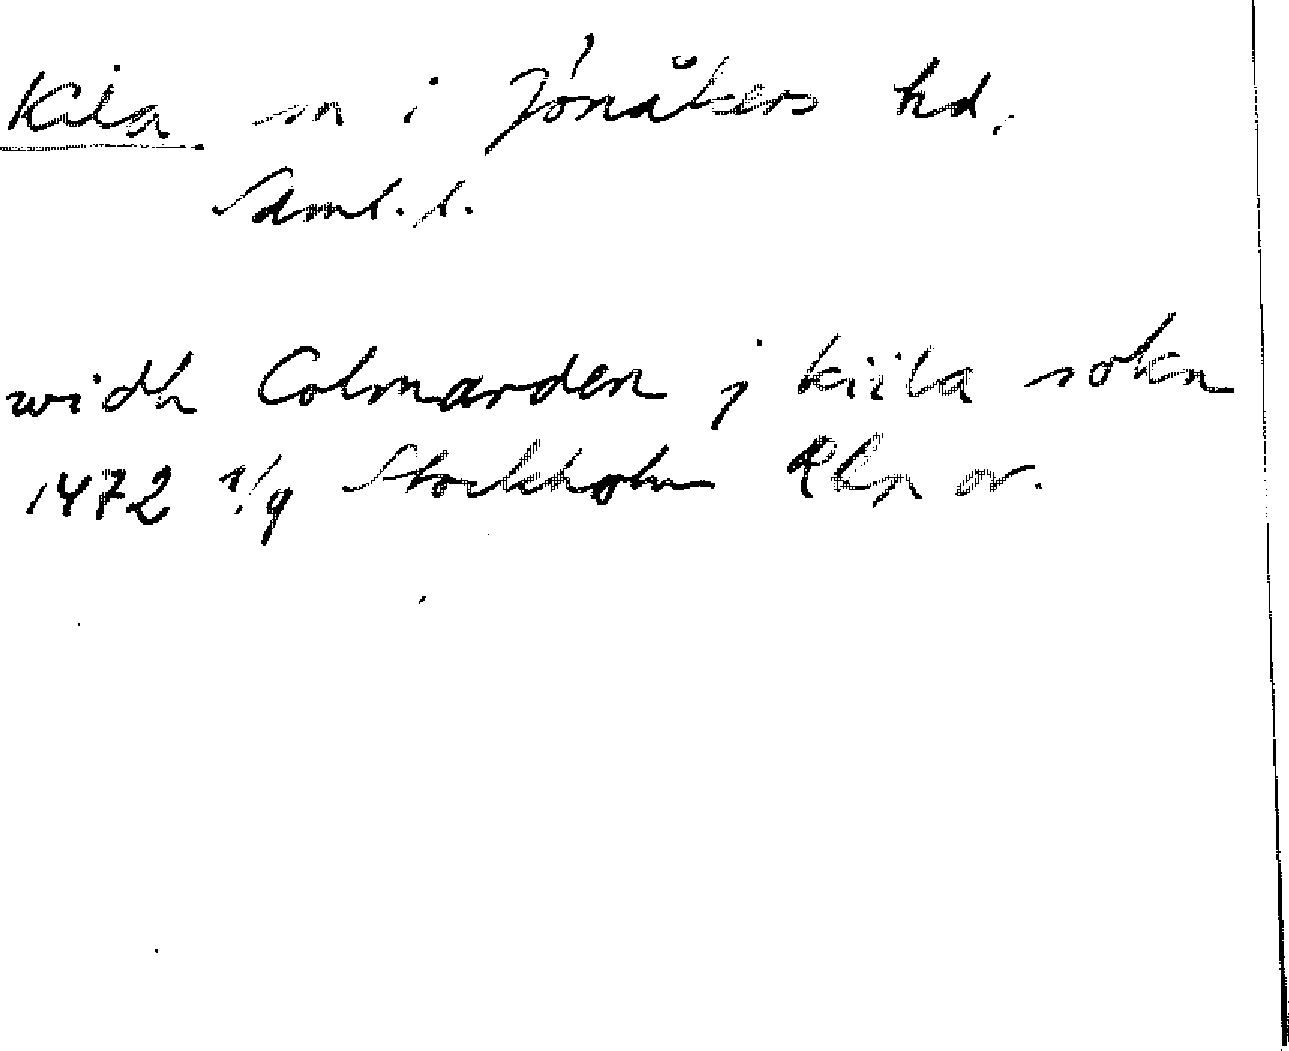 Kila sn i Jönåkers hd.
Saml. l.
widh Colmarden j kiila sokn
1472 1/9 Stockholm Rhn or.